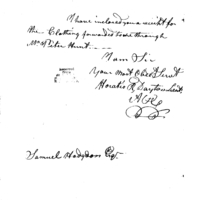 I have inclosed you a receipt for
the Clothing forwarded here through
Mr Peter Hunt
I am Sir
Your Most Obed Servt
Horatio R Dayton Lieut
Samuel Hodgdon Esqr